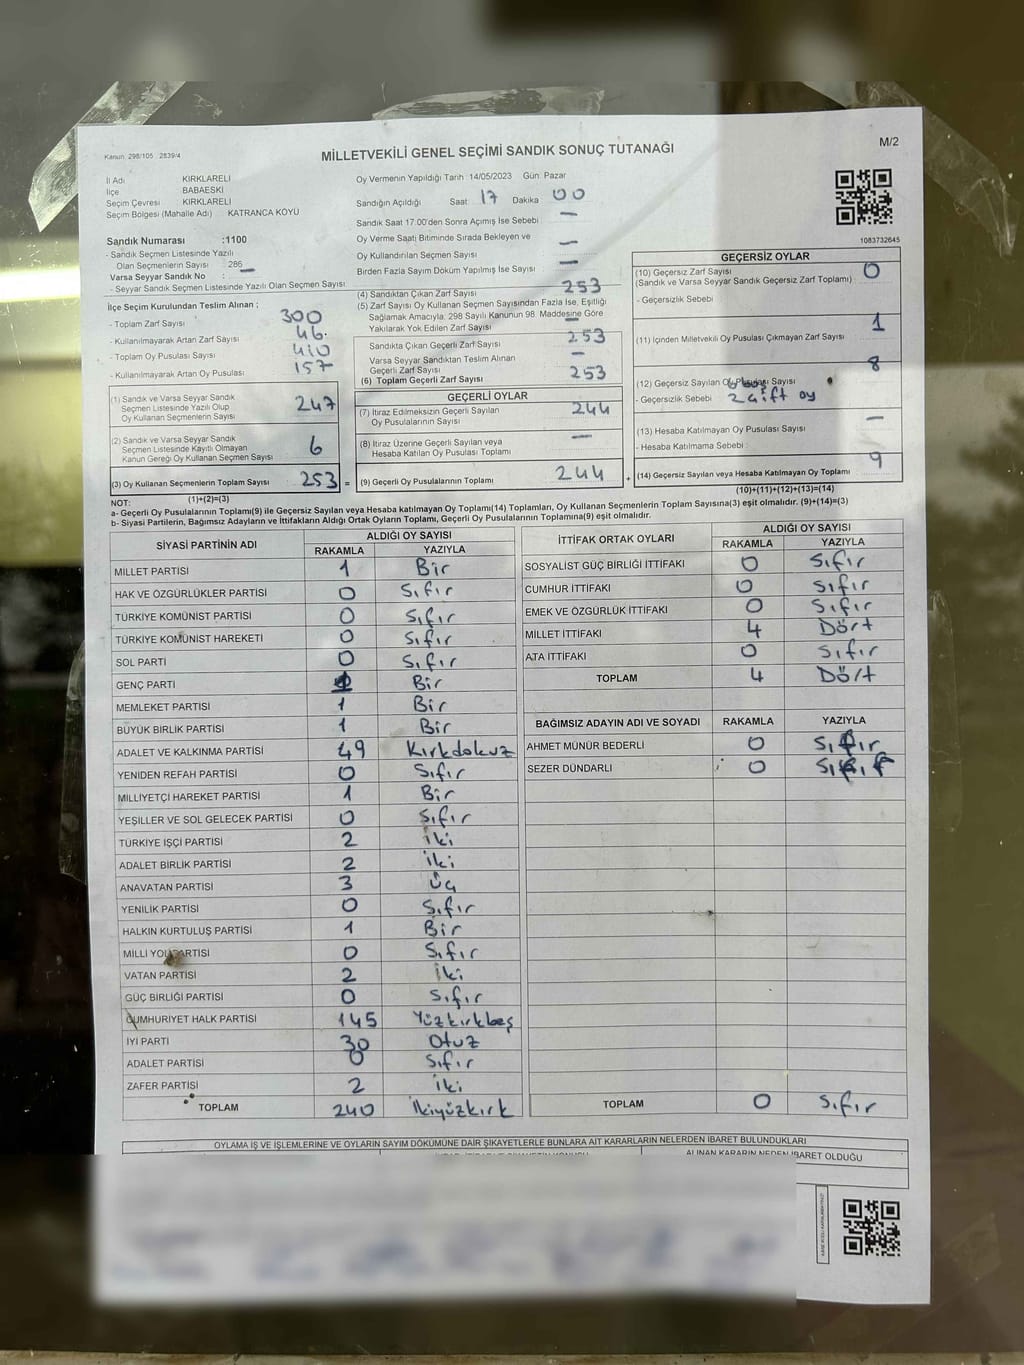 Kanun: 298/105 : 2839/4
MİLLETVEKİLİ GENEL SEÇİMİ SANDIK SONUÇ TUTANAĞI
M/2
İl Adı KIRKLARELİ
İlçe BABAESKİ
Seçim Çevresi KIRKLARELİ
Seçim Bölgesi (Mahalle Adı) KATRANCA KÖYÜ
Sandık Numarası :1100
- Sandık Seçmen Listesinde Yazılı
Olan Seçmenlerin Sayısı : 286
Varsa Seyyar Sandık No :
- Seyyar Sandık Seçmen Listesinde Yazılı Olan Seçmen Sayısı
Oy Vermenin Yapıldığı Tarih :14/05/2023 Gün: Pazar
Sandığın Açıldığı Saat 17 Dakika 00
Sandık Saat 17:00'den Sonra Açımış İse Sebebi —
Oy Verme Saati Bitiminde Sırada Bekleyen ve
Oy Kullandırılan Seçmen Sayısı —
Birden Fazla Sayım Döküm Yapılmış İse Sayısı —
1083732645
İlçe Seçim Kurulundan Teslim Alınan ;
- Toplam Zarf Sayısı 300
- Kullanılmayarak Artan Zarf Sayısı 46
- Toplam Oy Pusulası Sayısı 410
- Kullanılmayarak Artan Oy Pusulası 157
(1) Sandık ve Varsa Seyyar Sandık
Seçmen Listesinde Yazılı Olup
Oy Kullanan Seçmenlerin Sayısı 247
(2) Sandık ve Varsa Seyyar Sandık
Seçmen Listesinde Kayıtlı Olmayan
Kanun Gereği Oy Kullanan Seçmen Sayısı 6
(3) Oy Kullanan Seçmenlerin Toplam Sayısı 253 =
(1)+(2)=(3)
(4) Sandıktan Çıkan Zarf Sayısı 253
(5) Zarf Sayısı Oy Kullanan Seçmen Sayısından Fazla İse, Eşitliği
Sağlamak Amacıyla, 298 Sayılı Kanunun 98. Maddesine Göre
Yakılarak Yok Edilen Zarf Sayısı —
Sandıkta Çıkan Geçerli Zarf Sayısı 253
Varsa Seyyar Sandıktan Teslim Alınan
Geçerli Zarf Sayısı —
(6) Toplam Geçerli Zarf Sayısı 253
GEÇERLİ OYLAR
(7) İtiraz Edilmeksizin Geçerli Sayılan
Oy Pusulalarının Sayısı 244
(8) İtiraz Üzerine Geçerli Sayılan veya
Hesaba Katılan Oy Pusulası Toplamı —
(9) Geçerli Oy Pusulalarının Toplamı 244 +
GEÇERSİZ OYLAR
(10) Geçersiz Zarf Sayısı 0
(Sandık ve Varsa Seyyar Sandık Geçersiz Zarf Toplamı)
- Geçersizlik Sebebi
(11) İçinden Milletvekili Oy Pusulası Çıkmayan Zarf Sayısı 1
(12) Geçersiz Sayılan Oy Pusulası Sayısı 8
- Geçersizlik Sebebi 2 çift oy
(13) Hesaba Katılmayan Oy Pusulası Sayısı —
- Hesaba Katılmama Sebebi :
(14) Geçersiz Sayılan veya Hesaba Katılmayan Oy Toplamı 9
(10)+(11)+(12)+(13)=(14)
NOT:
a- Geçerli Oy Pusulalarının Toplamı(9) ile Geçersiz Sayılan veya Hesaba katılmayan Oy Toplamı(14) Toplamları, Oy Kullanan Seçmenlerin Toplam Sayısına(3) eşit olmalıdır. (9)+(14)=(3)
b- Siyasi Partilerin, Bağımsız Adayların ve İttifakların Aldığı Ortak Oyların Toplamı, Geçerli Oy Pusulalarının Toplamına(9) eşit olmalıdır.
SİYASİ PARTİNİN ADI ALDIĞI OY SAYISI
RAKAMLA YAZIYLA
MİLLET PARTİSİ 1 Bir
HAK VE ÖZGÜRLÜKLER PARTİSİ 0 Sıfır
TÜRKİYE KOMÜNİST PARTİSİ 0 Sıfır
TÜRKİYE KOMÜNİST HAREKETİ 0 Sıfır
SOL PARTİ 0 Sıfır
GENÇ PARTİ 1 Bir
MEMLEKET PARTİSİ 1 Bir
BÜYÜK BİRLİK PARTİSİ 1 Bir
ADALET VE KALKINMA PARTİSİ 49 Kırkdokuz
YENİDEN REFAH PARTİSİ 0 Sıfır
MİLLİYETÇİ HAREKET PARTİSİ 1 Bir
YEŞİLLER VE SOL GELECEK PARTİSİ 0 Sıfır
TÜRKİYE İŞÇİ PARTİSİ 2 İki
ADALET BİRLİK PARTİSİ 2 İki
ANAVATAN PARTİSİ 3 Üç
YENİLİK PARTİSİ 0 Sıfır
HALKIN KURTULUŞ PARTİSİ 1 Bir
MİLLİ YOL PARTİSİ 0 Sıfır
VATAN PARTİSİ 2 İki
GÜÇ BİRLİĞİ PARTİSİ 0 Sıfır
CUMHURİYET HALK PARTİSİ 145 Yüzkırkbeş
İYİ PARTİ 30 Otuz
ADALET PARTİSİ 0 Sıfır
ZAFER PARTİSİ 2 İki
TOPLAM 240 İkiyüzkırk
İTTİFAK ORTAK OYLARI ALDIĞI OY SAYISI
RAKAMLA YAZIYLA
SOSYALİST GÜÇ BİRLİĞİ İTTİFAKI 0 Sıfır
CUMHUR İTTİFAKI 0 Sıfır
EMEK VE ÖZGÜRLÜK İTTİFAKI 0 Sıfır
MİLLET İTTİFAKI 4 Dört
ATA İTTİFAKI 0 Sıfır
TOPLAM 4 Dört
BAĞIMSIZ ADAYIN ADI VE SOYADI RAKAMLA YAZIYLA
AHMET MÜNÜR BEDERLİ 0 Sıfır
SEZER DÜNDARLI 0 Sıfır
TOPLAM 0 Sıfır
OYLAMA İŞ VE İŞLEMLERİNE VE OYLARIN SAYIM DÖKÜMÜNE DAİR ŞİKAYETLERLE BUNLARA AİT KARARLARIN NELERDEN İBARET BULUNDUKLARI
ALINAN KARARIN NEDEN İBARET OLDUĞU